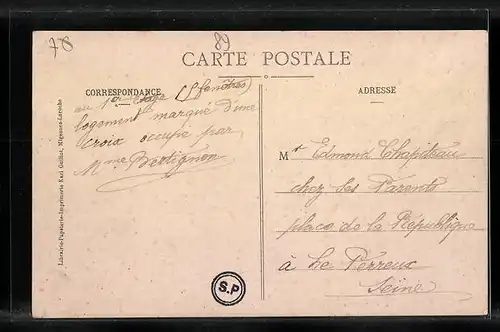 78
89
CARTE POSTALE
CORRESPONDANCE
au 1er étage (5 fenêtres)
logement marqué d'une
croix occupé par
Mme
ADRESSE
Mr Edmond Chapiteau
chez ses Parents
place de la République
à Le Perreux
Seine
S.P
Librairie-Papeterie-Imprimerie Karl Guillot, Migennes-Laroche